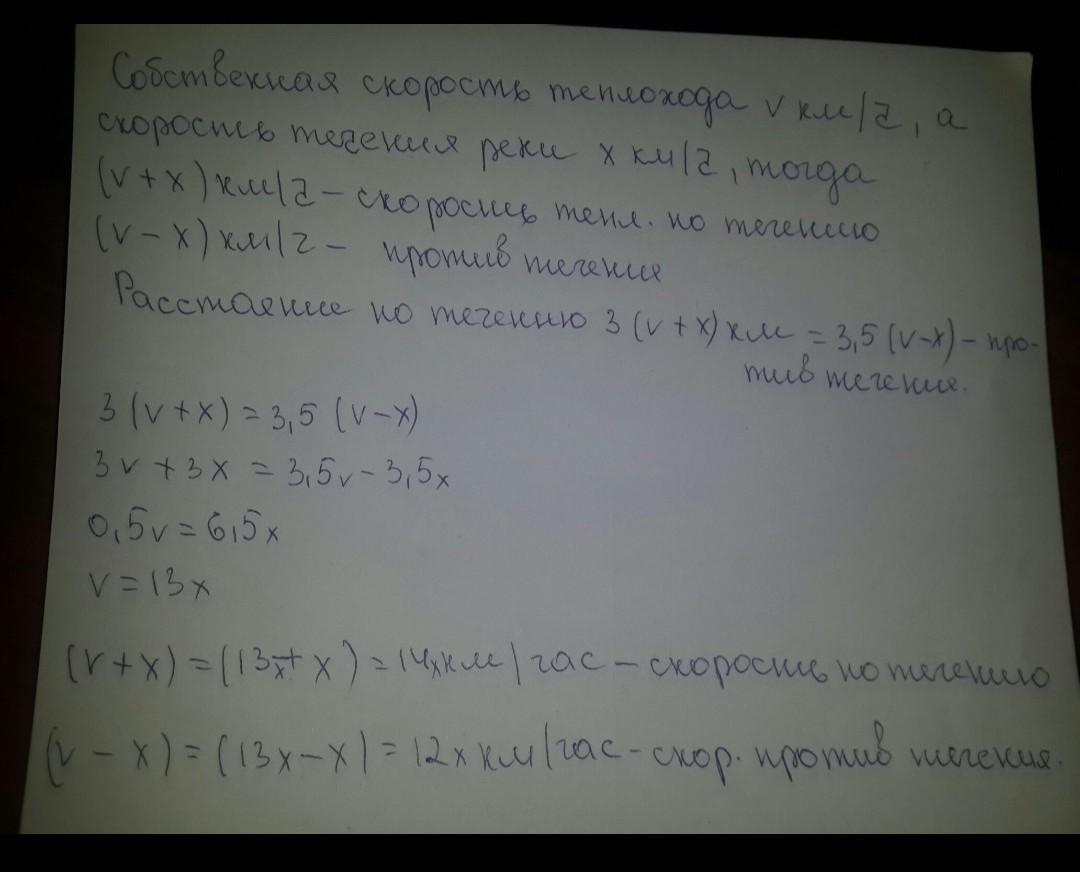 Собственная скорость теплохода v км/ч, а
скорость течения реки x км/ч, тогда
(v+x) км/ч – скорость тепл. по течению
(v – x) км/ч – против течения
Расстояние по течению 3 (v+x) км = 3,5 (v-x) – про-
тив течения.
3 (v+x) = 3,5 (v-x)
3v + 3x = 3,5v - 3,5x
0,5v = 6,5x
v = 13x
(v+x) = (13x + x) = 14x км/час – скорость по течению
(v – x) = (13x-x) = 12x км/час – скор. против течения.